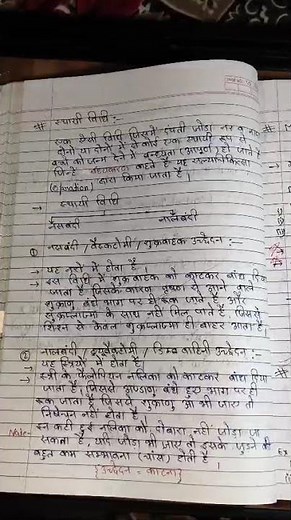 # स्थायी विधि :-
एक ऐसी विधि जिसमें दंपती जोड़ा नर व मादा
दोनों या दोनों में से कोई एक स्थायी रूप से
बच्चों को जन्म देने में बन्ध्यता (आपूर्ण) हो जाते हैं
जिन्हें बंध्याकरण कहते हैं यह शल्यचिकित्सा
(Operation) द्वारा किया जाता है।
→ स्थायी विधि
नसबंदी नलबंदी
① नसबंदी / वैसेक्टोमी / शुक्रवाहक उच्छेदन :-
→ यह नरों में होता है।
→ इस विधि में शुक्रवाहक को काटकर बांध दिया
जाता है जिसके कारण वृषण से आने वाले
शुक्राणु बंधे भाग पर ही रुक जाते हैं और
शुक्रप्लाज्मा के साथ नहीं मिल पाते हैं जिससे
शिश्न से केवल शुक्रप्लाज्मा ही बाहर आता है।
② नालबंदी / ट्यूबैक्टोमी / डिम्ब वाहिनी उच्छेदन :-
→ यह स्त्रियों में होता है।
→ स्त्री के फैलोपियन नलिका को काटकर बांध दिया
जाता है। जिससे अण्डाणु बंधे हुए भाग पर ही
रुक जाता है जिससे शुक्राणु आ भी जाए तो
निषेचन नहीं होता है।
Note- इन कटी हुई नलिका को दोबारा नहीं जोड़ा जा
सकता है, यदि जोड़ा भी जाए तो इसके जुड़ने की
बहुत कम सम्भावना (चांस) होती है।
{उच्छेदन = काटना}